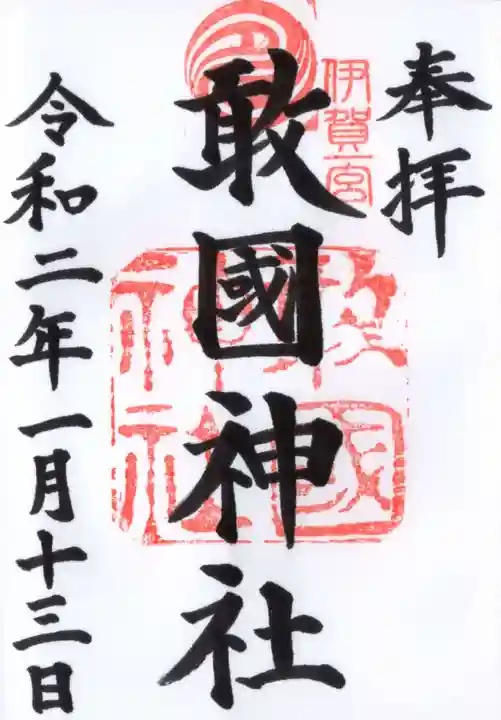 奉拝
伊賀一宮
敢國神社
敢國神社
令和二年一月十三日